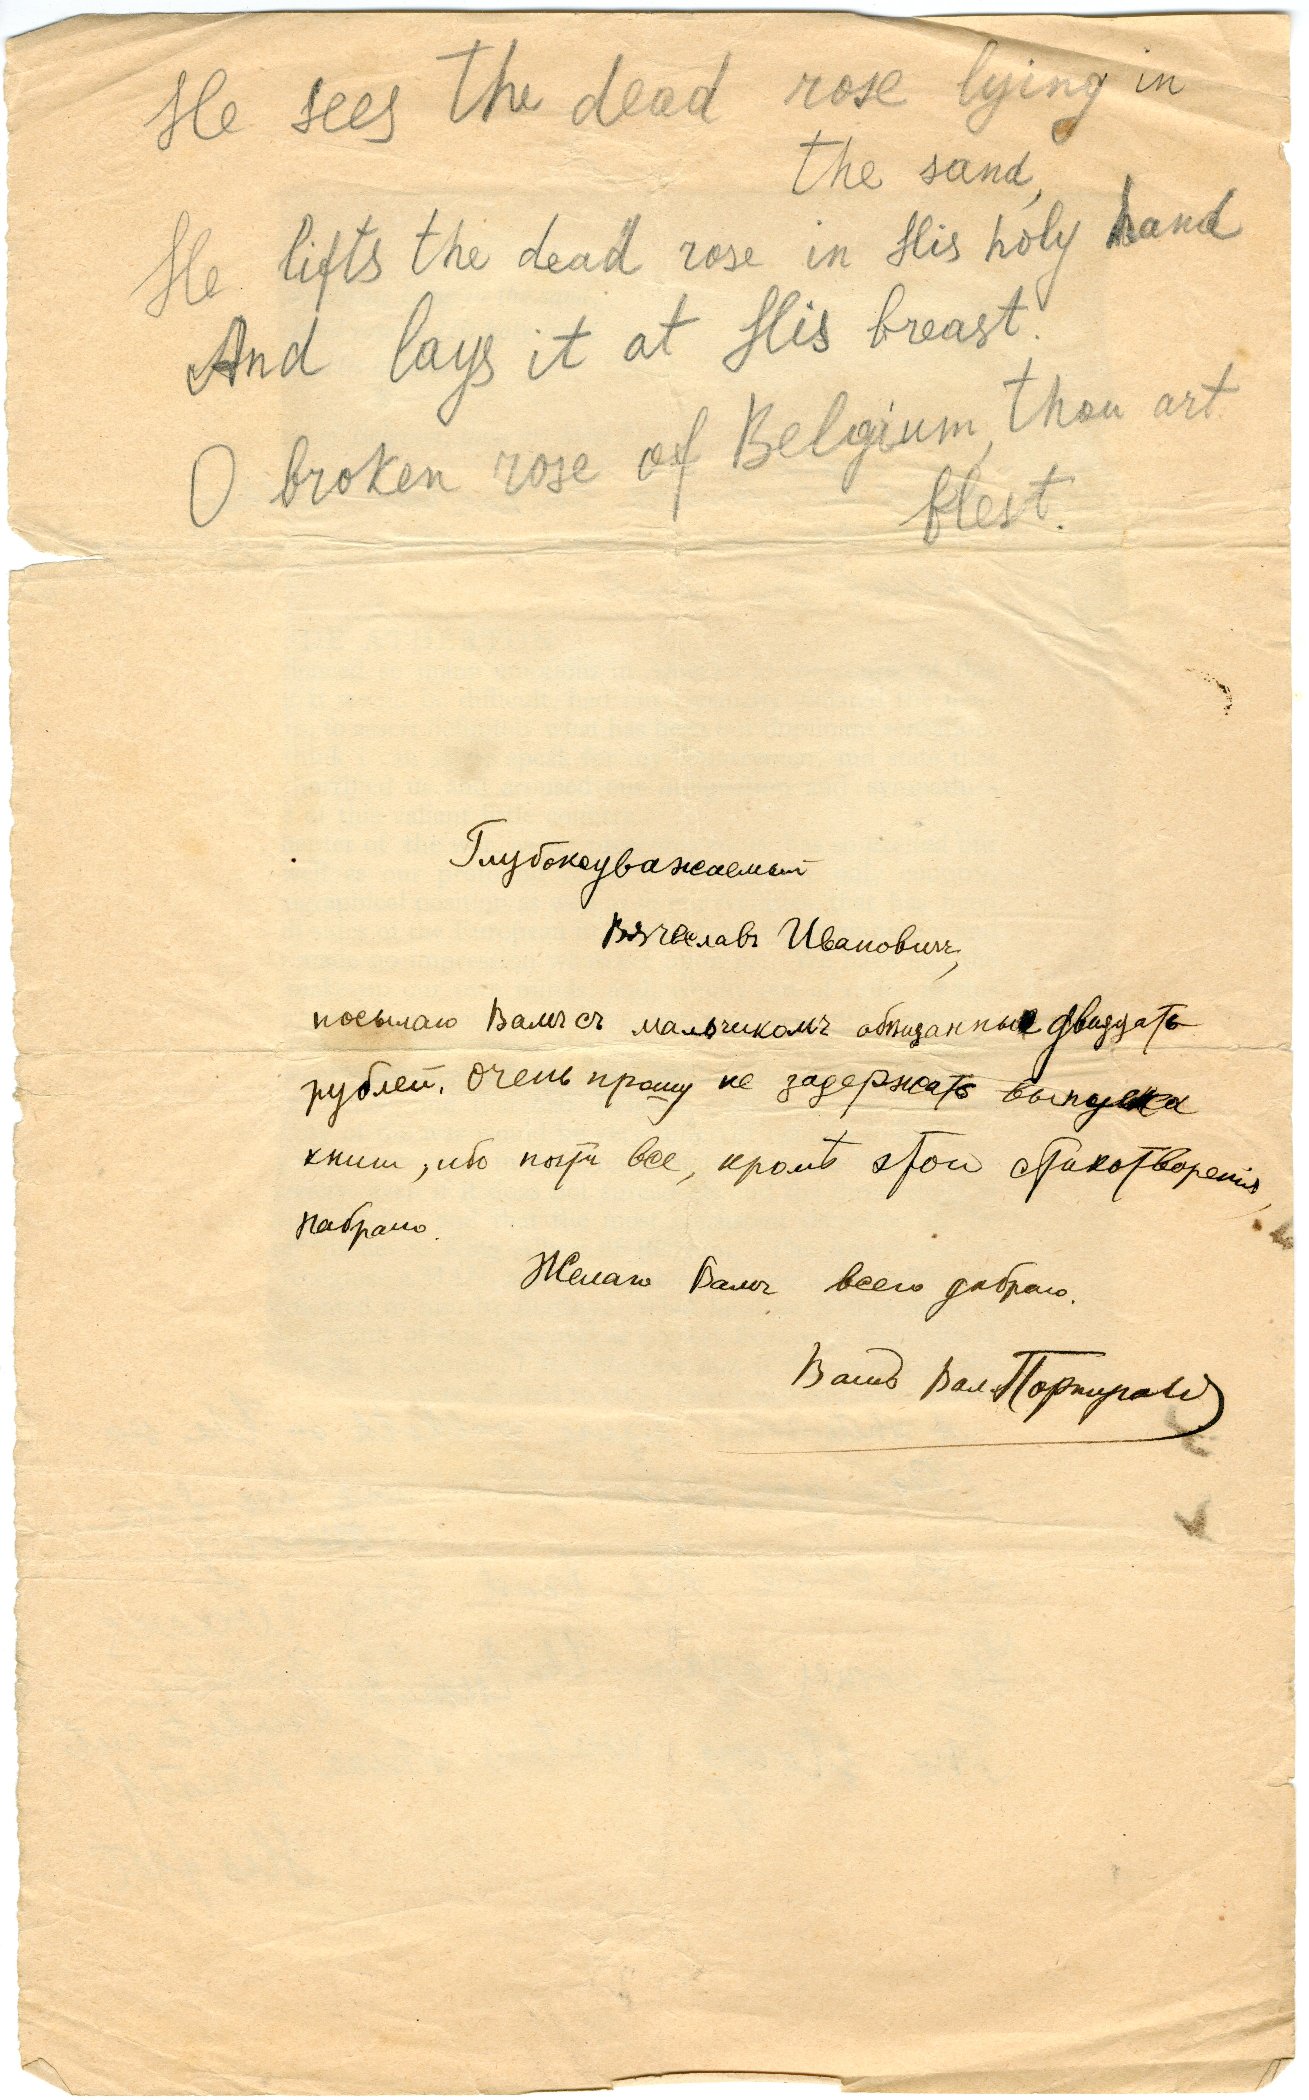 He sees the dead rose lying in
the sand,
He lifts the dead rose in His holy hand
And lays it at His breast.
O broken rose of Belgium, thou art
blest.
Глубокоуважаемый
Вячеславъ Ивановичъ,
посылаю Вамъ съ мальчикомъ обѣщанные двадцать
рублей. Очень прошу не задержать выпуска
книги, ибо почти все, кромѣ этой стихотворенія,
набрано.
Желаю Вамъ всего добраго.
Вашъ Вал.